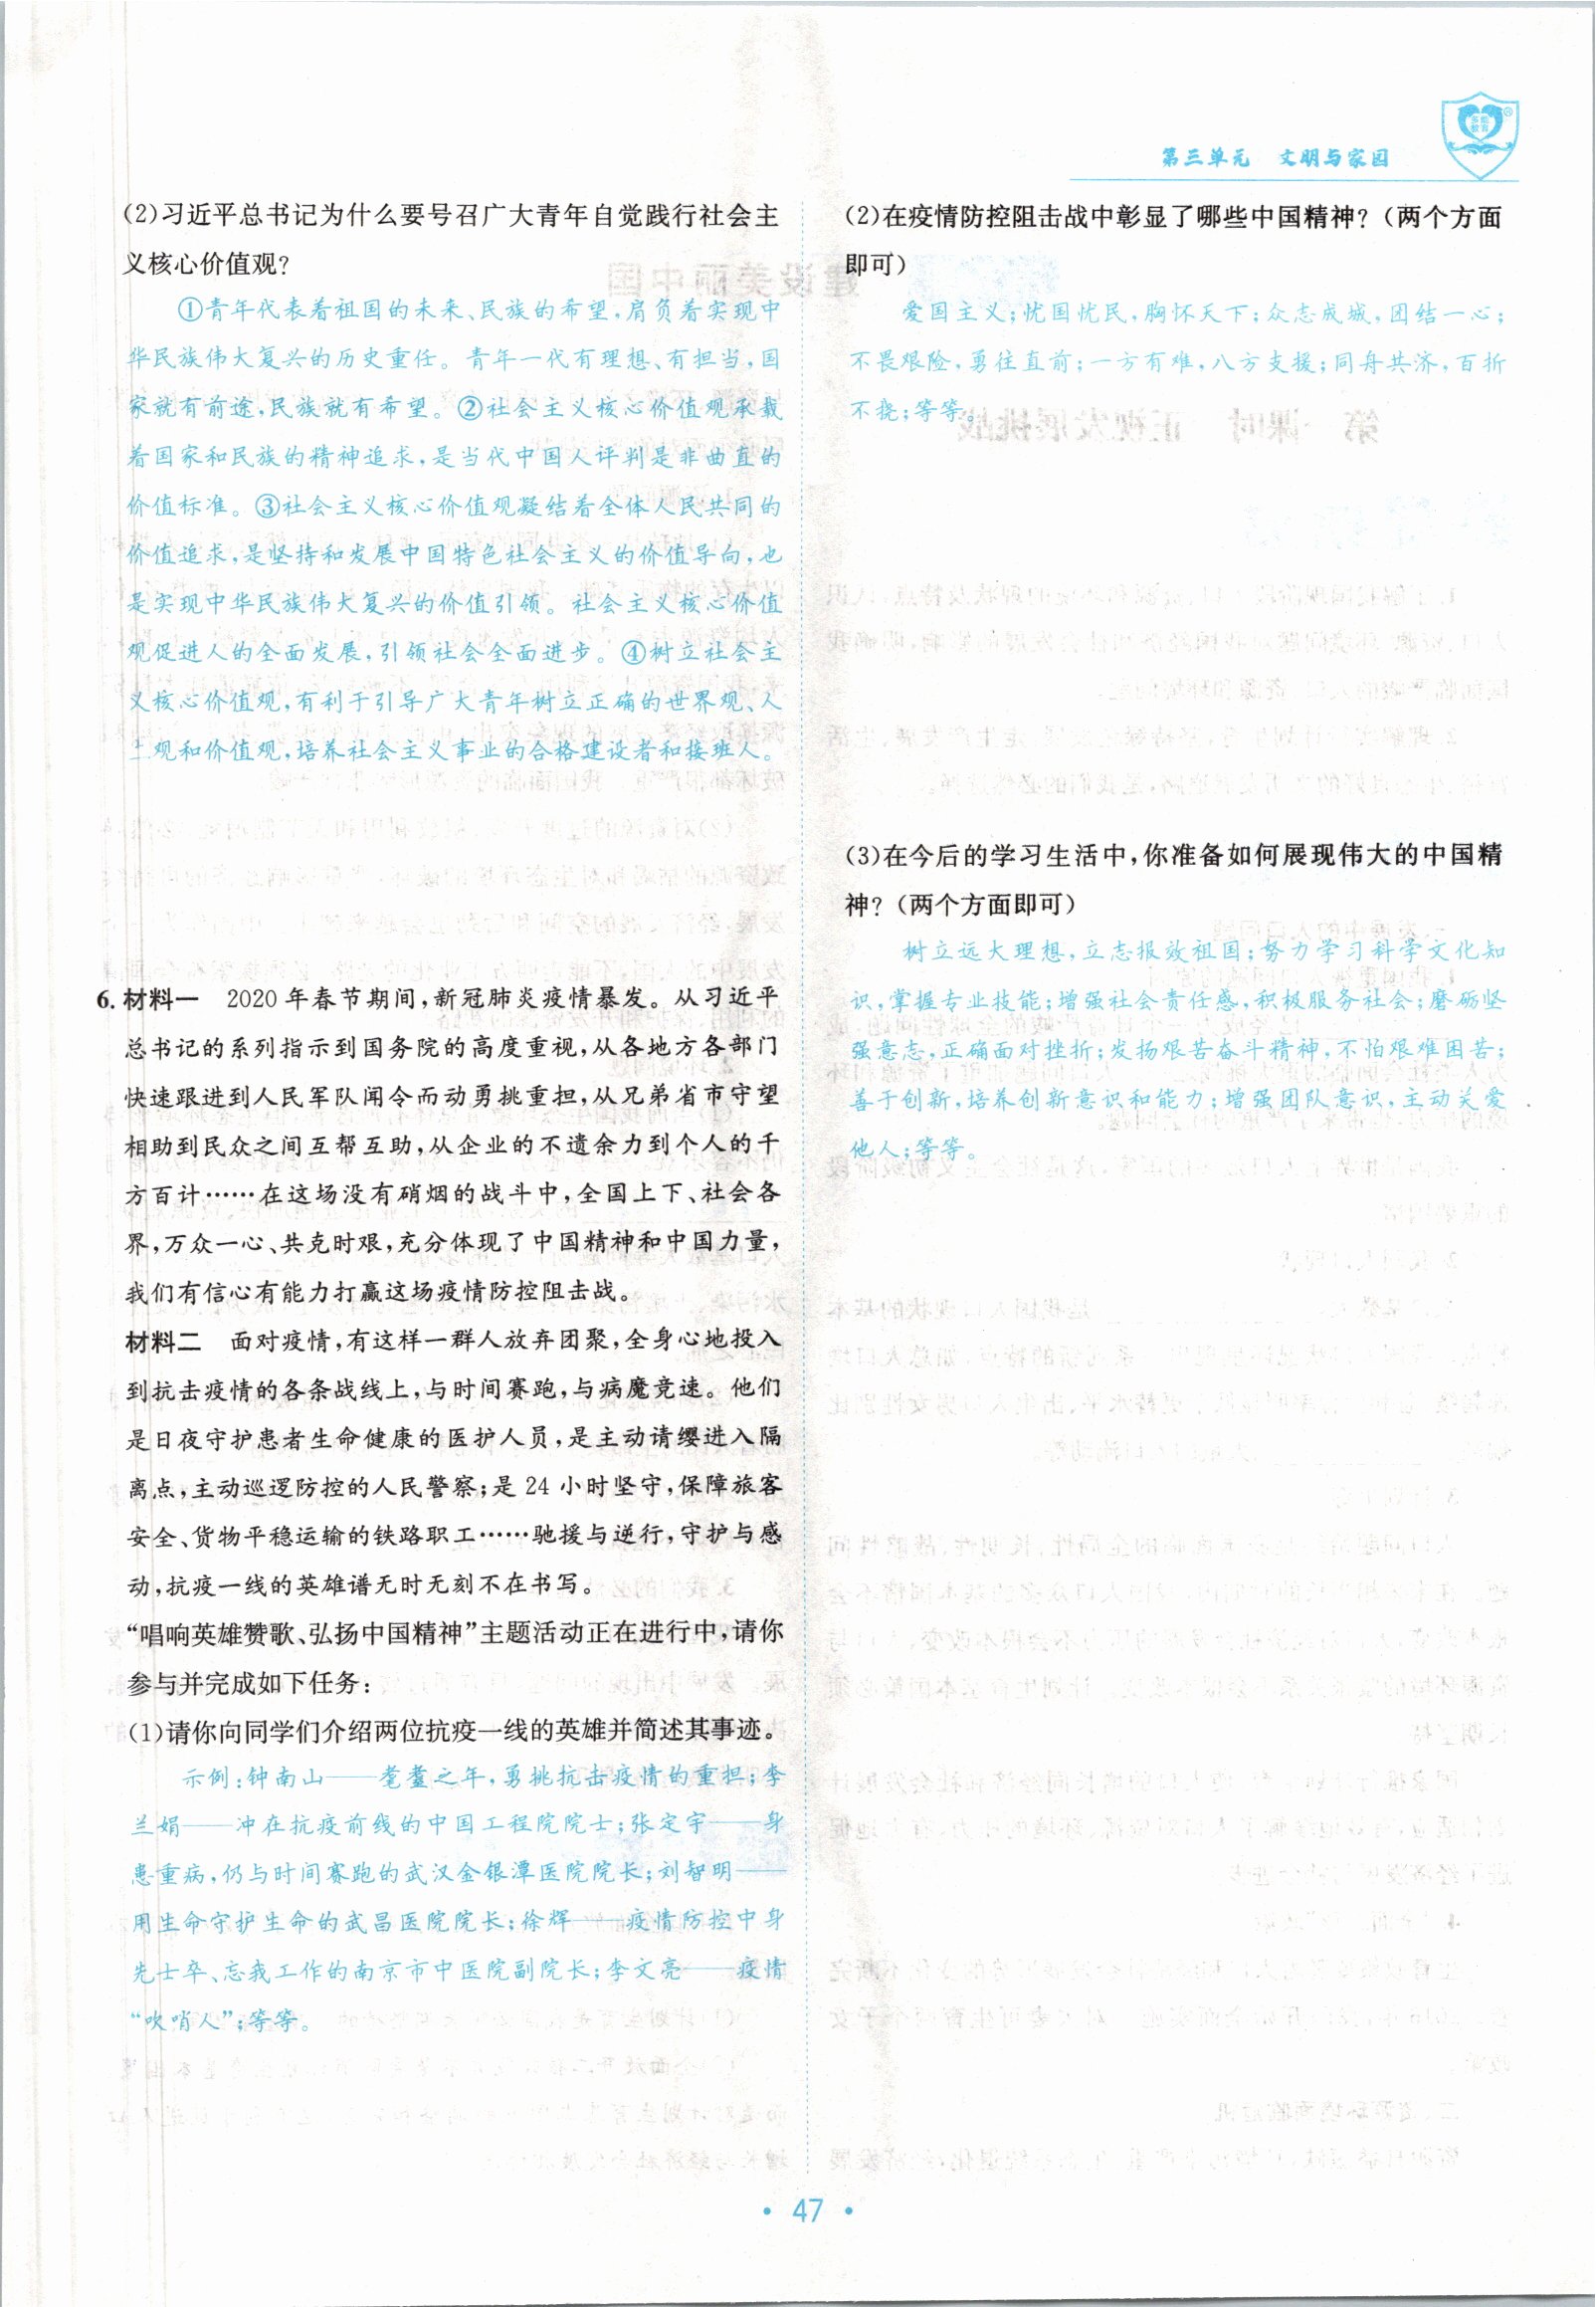 第三单元 文明与家园
(2)习近平总书记为什么要号召广大青年自觉践行社会主
义核心价值观?
①青年代表着祖国的未来、民族的希望,肩负着实现中
华民族伟大复兴的历史重任。青年一代有理想、有担当,国
家就有前途,民族就有希望。②社会主义核心价值观承载
着国家和民族的精神追求,是当代中国人评判是非曲直的
价值标准。③社会主义核心价值观凝结着全体人民共同的
价值追求,是坚持和发展中国特色社会主义的价值导向,也
是实现中华民族伟大复兴的价值引领。社会主义核心价值
观促进人的全面发展,引领社会全面进步。④树立社会主
义核心价值观,有利于引导广大青年树立正确的世界观、人
生观和价值观,培养社会主义事业的合格建设者和接班人。
6. 材料一 2020年春节期间,新冠肺炎疫情暴发。从习近平
总书记的系列指示到国务院的高度重视,从各地方各部门
快速跟进到人民军队闻令而动勇挑重担,从兄弟省市守望
相助到民众之间互帮互助,从企业的不遗余力到个人的千
方百计……在这场没有硝烟的战斗中,全国上下、社会各
界,万众一心、共克时艰,充分体现了中国精神和中国力量,
我们有信心有能力打赢这场疫情防控阻击战。
材料二 面对疫情,有这样一群人放弃团聚,全身心地投入
到抗击疫情的各条战线上,与时间赛跑,与病魔竞速。他们
是日夜守护患者生命健康的医护人员,是主动请缨进入隔
离点,主动巡逻防控的人民警察;是24小时坚守,保障旅客
安全、货物平稳运输的铁路职工……驰援与逆行,守护与感
动,抗疫一线的英雄谱无时无刻不在书写。
“唱响英雄赞歌、弘扬中国精神”主题活动正在进行中,请你
参与并完成如下任务:
(1)请你向同学们介绍两位抗疫一线的英雄并简述其事迹。
示例:钟南山——耄耋之年,勇挑抗击疫情的重担;李
兰娟——冲在抗疫前线的中国工程院院士;张定宇——身
患重病,仍与时间赛跑的武汉金银潭医院院长;刘智明——
用生命守护生命的武昌医院院长;徐辉——疫情防控中身
先士卒、忘我工作的南京市中医院副院长;李文亮——疫情
“吹哨人”;等等。
(2)在疫情防控阻击战中彰显了哪些中国精神?(两个方面
即可)
爱国主义;忧国忧民,胸怀天下;众志成城,团结一心;
不畏艰险,勇往直前;一方有难,八方支援;同舟共济,百折
不挠;等等。
(3)在今后的学习生活中,你准备如何展现伟大的中国精
神?(两个方面即可)
树立远大理想,立志报效祖国;努力学习科学文化知
识,掌握专业技能;增强社会责任感,积极服务社会;磨砺坚
强意志,正确面对挫折;发扬艰苦奋斗精神,不怕艰难困苦;
善于创新,培养创新意识和能力;增强团队意识,主动关爱
他人;等等。
• 47 •